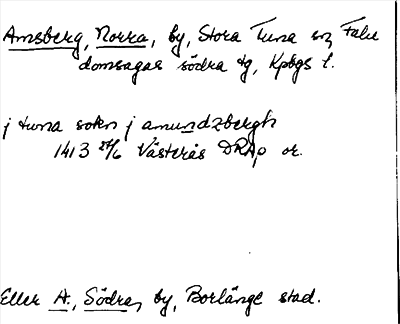 Amsberg, Norra, by, Stora Tuna sn, Falu
domsagas södra tg, Kpbgs l.
j tuna sokn j amundzbergh
1413 27/6 Västerås DRAp or.
Eller A., Södra, by, Borlänge stad.